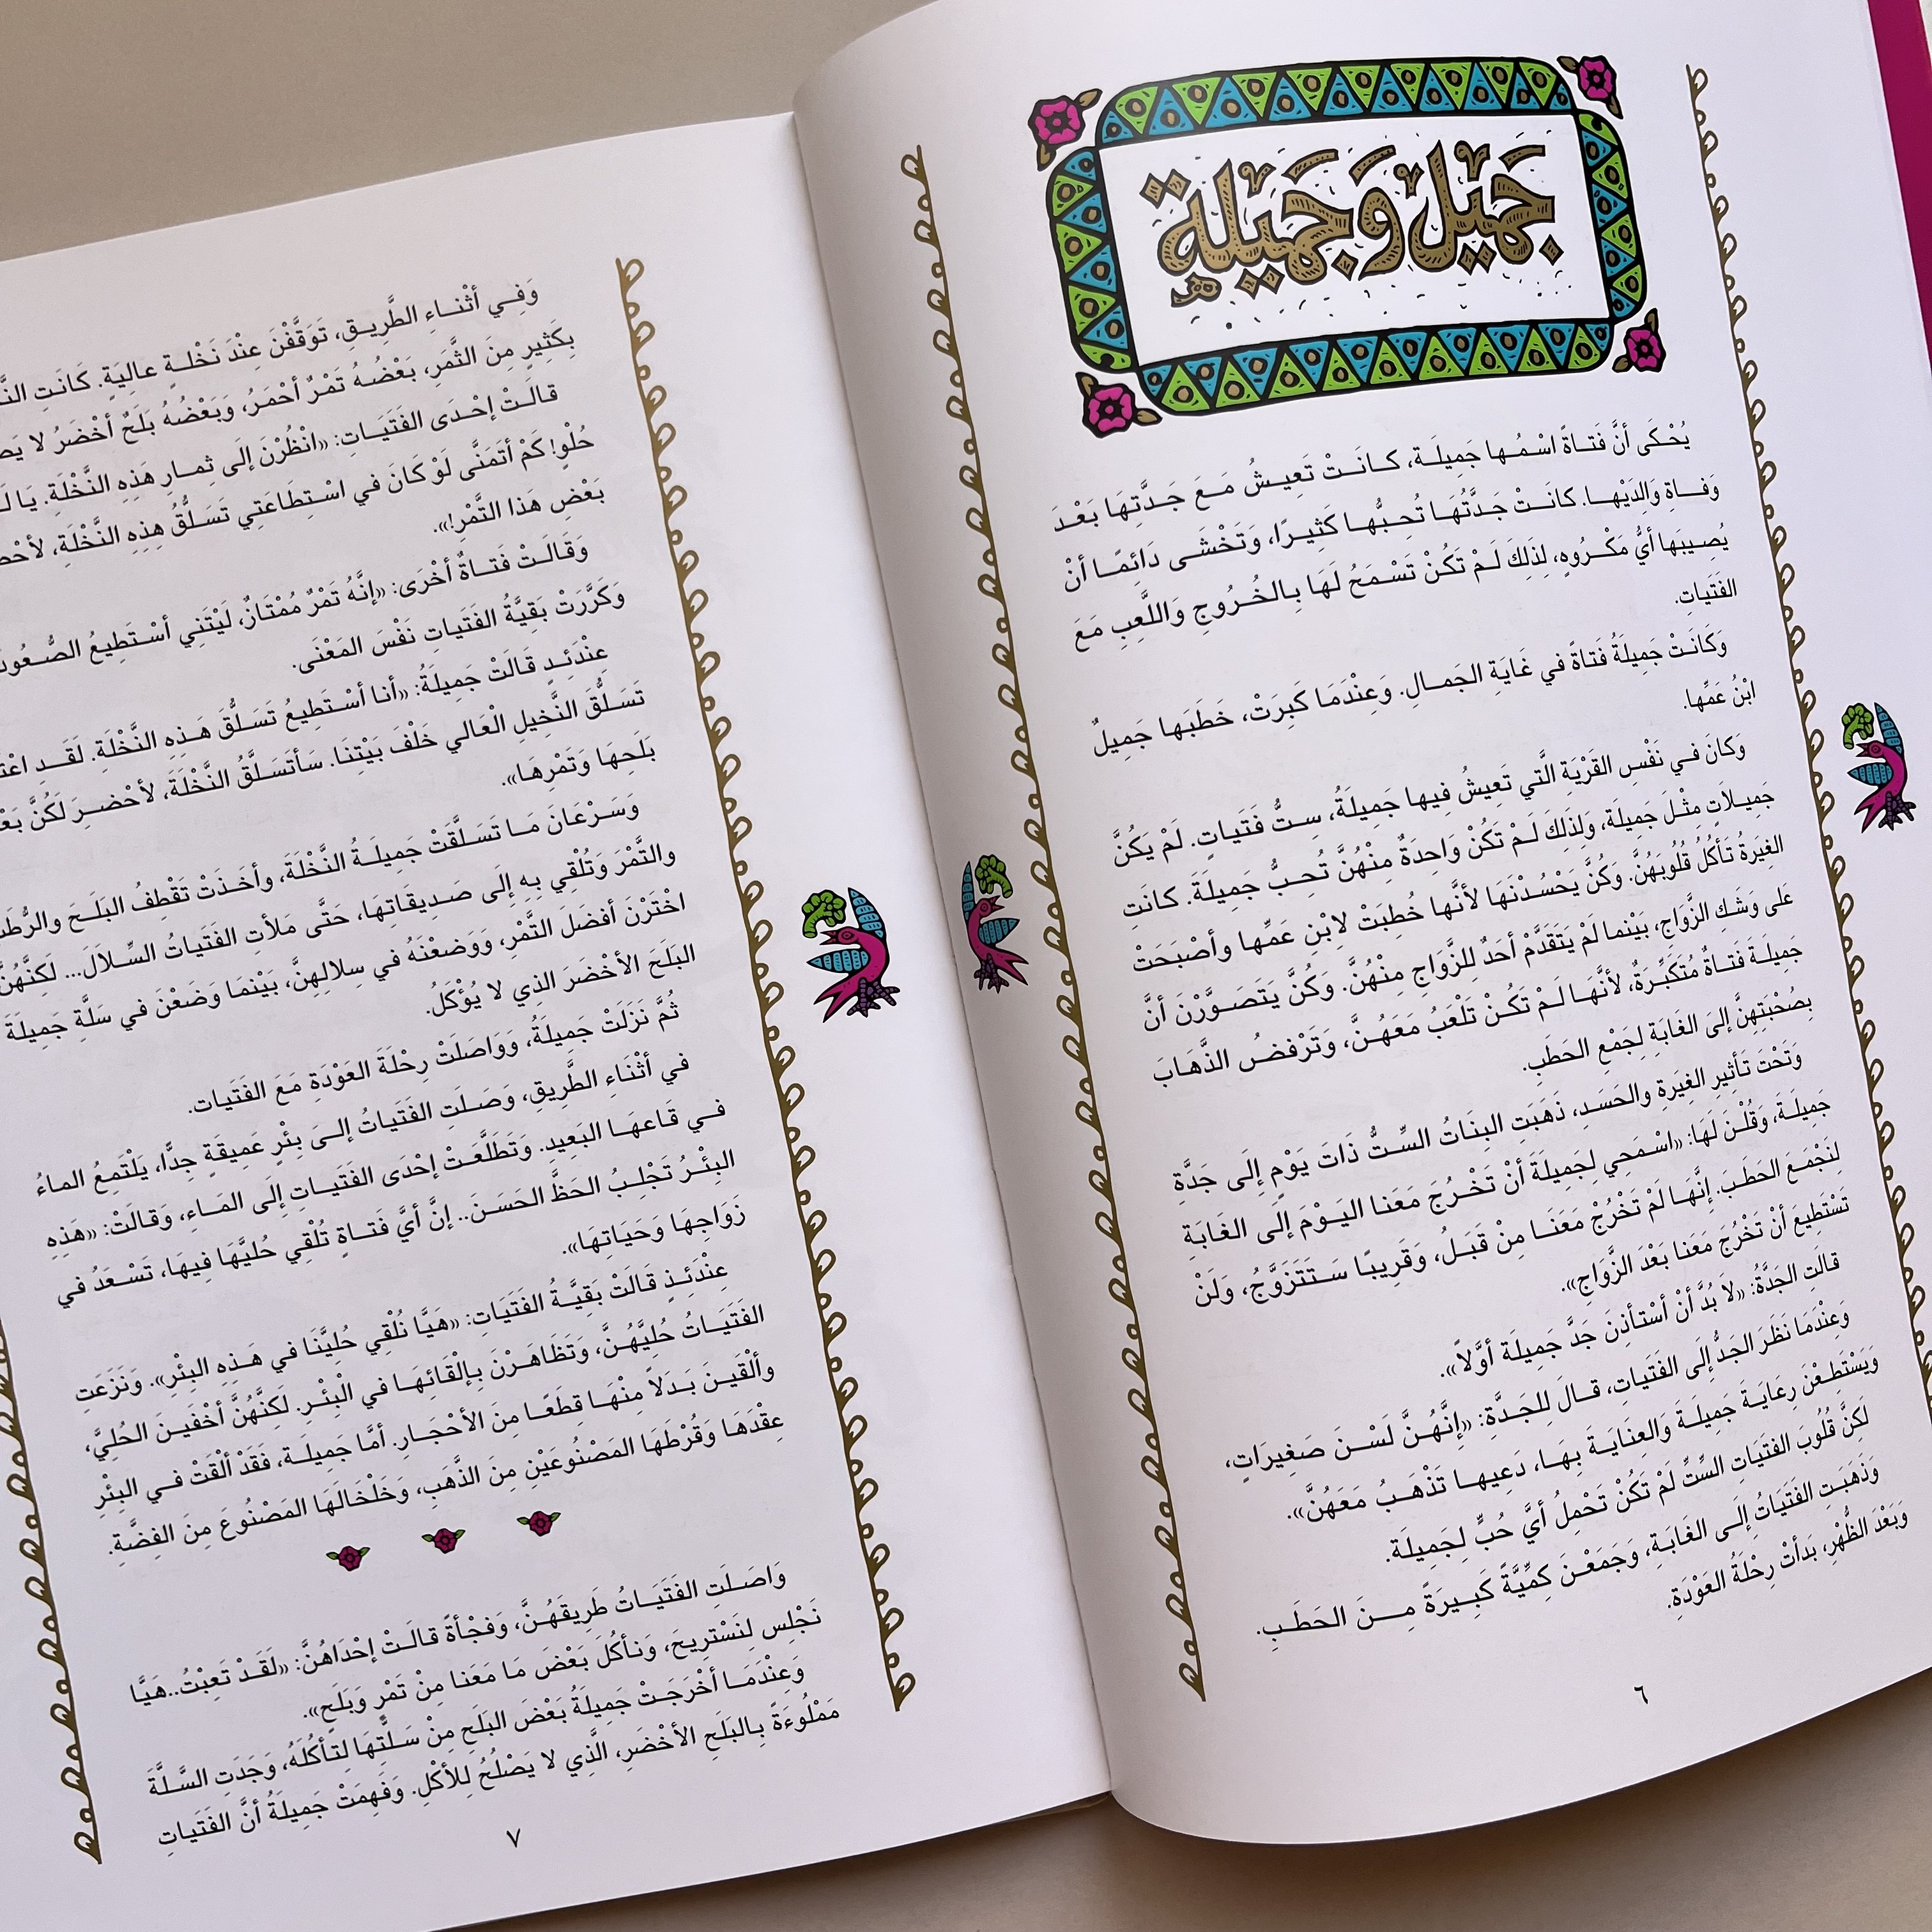 جَمِيل وَجَمِيلة
يُحْكَى أنَّ فَتـاةً اسْمُـها جَمِيلَـة، كـانَـتْ تَعِيـشُ مَـعَ جَـدَّتِهَا بَعْـدَ
وَفـاةِ والِدَيْهـا. كانَـتْ جَدَّتُهَـا تُحِـبُّهـا كَثِيـرًا، وَتَخْشَـى دَائِمًـا أنْ
يُصِيبهَا أيُّ مَكْـرُوهٍ، لِذَلِكَ لَـمْ تَكُـنْ تَسْمَحُ لَهَا بِـالخُـرُوجِ وَاللَّعِبِ مَعَ
الفَتَيَاتِ.
وَكَانَـتْ جَمِيلَةُ فَتاةً في غَايَةِ الجَمـالِ. وَعِنْدَمَا كَبِرَتْ، خَطَبَها جَمِيلٌ
ابْنُ عَمِّها.
وَكانَ فـي نَفْسِ القَرْيَةِ الَّتي تَعِيشُ فِيها جَمِيلَةُ، سِـتُّ فَتَيـاتٍ. لَمْ يَكُنَّ
جَمِيـلاَتٍ مِثْـلَ جَمِيلَةَ، وَلِذَلِكَ لَـمْ تَكُنْ وَاحِدَةٌ مِنْهُنَّ تُحِـبُّ جَمِيلَةَ. كانَتِ
الغِيرَةُ تَأكُلُ قُلُوبَهُنَّ. وَكُنَّ يَحْسُدْنَهَا لأنَّها خُطِبَتْ لابْنِ عَمِّها وأصْبَحَتْ
عَلى وَشَكِ الزَّوَاجِ، بَيْنَما لَمْ يَتَقَدَّمْ أحَدٌ لِلزَّوَاجِ مِنْهُنَّ. وَكُنَّ يَتَصَـوَّرْنَ أنَّ
جَمِيلَـةَ فَتَـاةٌ مُتَكَبِّـرَةٌ، لأنَّهَـا لَـمْ تَكُـنْ تَلْعَبُ مَعَهُـنَّ، وَتَرْفضُ الذَّهَـابَ
بِصُحْبَتِهِنَّ إلَى الغَابَةِ لِجَمْعِ الحَطَبِ.
وَتَحْتَ تَأثِيرِ الغِيَرةِ والحَسَـدِ، ذَهَبَتِ البِنَاتُ السِّـتُّ ذَاتَ يَوْمٍ إلَى جَدَّةِ
جَمِيلَـةَ، وَقُلْـنَ لَهَا: «اسْمَحِي لِجَمِيلَةَ أنْ تَخْـرُجَ مَعَنا اليَـوْمَ إلَى الغَـابَةِ
لِنَجْمَـعَ الحَطَـبَ. إنَّهَـا لَمْ تَخْرُجْ مَعَنَـا مِنْ قَبَـلُ، وَقَرِيبًـا سَـتَتَزَوَّجُ، وَلَنْ
تَسْتَطِيعَ أنْ تَخْرُجَ مَعَنا بَعْدَ الزَّوَاجِ».
قالَتِ الجَدَّةُ: «لاَ بُدَّ أنْ أسْتَأذِنَ جَدَّ جَمِيلَة أوَّلاً».
وَعِنْدَمَا نَظَرَ الجَدُّ إلَى الفَتَيَاتِ، قـالَ لِلجَـدَّةِ: «إنَّهُـنَّ لَسْـنَ صَغِيرَاتٍ،
وَيَسْتَطِعْنَ رِعَايَـةَ جَمِيلَـةَ وَالعِنَايَـةَ بِهَـا، دَعِيهـا تَذْهَـبُ مَعَهُنَّ».
لَكِنَّ قُلُوبَ الفَتَيَاتِ السِّتِّ لَمْ تَكُنْ تَحْمِلُ أيَّ حُبٍّ لِجَمِيلَة.
وَذَهَبَـتِ الفَتَيَاتُ إلَـى الغَابَـةِ، وَجَمَعْـنَ كَمِّيَّةً كَبِـيرَةً مِـنَ الحَطَـبِ.
وَبَعْدَ الظُّهْرِ، بَدَأتْ رِحْلَةُ العَوْدَةِ.
٦
وَفِـي أثْنـاءِ الطَّرِيـقِ، تَوَقَّفْنَ عِنْدَ نَخْلَـةٍ عالِيَةٍ. كَانَتِ
بِكَثِيرٍ مِنَ الثَّمَرِ، بَعْضُهُ تَمْرٌ أحْمَرُ، وَبَعْضُهُ بَلَحٌ أخْضَرُ لا
قالَـتْ إحْـدَى الفَتَيَـاتِ: «انْظُرْنَ إلَى ثِمـارِ هَذِهِ النَّخْلَةِ. يَا
حُلْوٍ! كَمْ أتَمَنَّى لَوْ كَانَ في اسْـتِطَاعَتِي تَسَـلُّقُ هِذِهِ النَّخْلَةِ،
بَعْض هَذا التَّمْرِ!».
وَقَالَـتْ فَتَـاةٌ أخْرَى: «إنَّهُ تَمْرٌ مُمْتَازٌ، لَيْتَني أسْـتَطِيعُ
وَكَرَّرَتْ بَقِيَّةُ الفَتَيَاتِ نَفْسَ المَعْنَى.
عِنْدَئِـدٍ قَـالَتْ جَمِيلَةُ: «أنا أسْـتَطِيعُ تَسَـلُّقَ هَـذِهِ النَّخْلَةِ. لَقَـدِ
تَسَـلُّقَ النَّخِيلِ الْعَالي خَلْفَ بَيْتِنَا. سَأتَسَـلَّقُ النَّخْلَةَ، لأحْضِـرَ لَكُنَّ
بَلَحِهَا وَتَمْرِهَا».
وَسَـرْعَانَ مَـا تَسَـلَّقَتْ جَمِيلَـةُ النَّخْلَةَ، وأخَـذَتْ تَقْطِفُ البَلَـحَ
والتَّمْرَ وَتُلْقِي بِـهِ إلى صَـدِيقَاتِهَا، حَتَّى مَلأتِ الفَتَيَاتُ السِّـلاَلَ... لَكِنَّهُنَّ
اخْتَرْنَ أفضَلَ التَّمْرِ، وَوَضعْنَهُ في سِلالِهِنَّ، بَيْنَمَا وَضَعْنَ في سَلَّةِ جَمِيلَةَ
البَلَحَ الأخْضَرَ الذِي لا يُؤْكَلُ.
ثُمَّ نَزَلَتْ جَمِيلَةُ، وَوَاصَلَتْ رِحْلَةَ العَوْدَةِ مَعَ الفَتَيات.
في أثْنَاءِ الطَّرِيقِ، وَصَـلَتِ الفَتَيَاتُ إلـىَ بِئْرٍ عَمِيقَةٍ جِدًّا، يَلْتَمِعُ الماءُ
فـي قَـاعـهَـا البَعِيدِ. وَتَطَلَّعَـتْ إحْدَى الفَتَيَـاتِ إلَى المَـاءِ، وَقَـالَتْ: «هَذِهِ
البِئْـرُ تَجْلِـبُ الحَظَّ الحَسَـنَ.. إنَّ أيَّ فَتـاةٍ تُلْقِي حُليَّهَا فِيهَا، تَسْـعَدُ في
زَوَاجِهَا وَحَيَاتِهَا».
عِنْدَئِـذٍ قَالَتْ بَقِيَّـةُ الفَتَيَاتِ: «هَيَّا نُلْقِي حُلِيَّنَا في هَـذِهِ البِئْرِ». وَنَزَعَتِ
الفَتَيَـاتُ حُلِيَّهُـنَّ، وَتَظَاهَـرْنَ بِـإلْقَائِهَـا في الْبِئْـرِ. لَكِنَّهُنَّ أخْفَيـنَ الحُلِيَّ،
وألْقَيـنَ بَـدَلاً مِنْهَـا قِطَعًـا مِنَ الأحْجَـارِ. أمَّا جَمِيلَـة، فَقَدْ ألْقَتْ فـي البِئْرِ
عِقْدَهَا وَقُرْطَهَا المَصْنُوعَيْنِ مِنَ الذَّهَبِ، وَخَلْخَالَهَا المَصْنُوعَ مِنَ الفِضَّةِ.
وَاصَـلَتِ الفَتَيَـاتُ طَرِيقَهُـنَّ، وَفَجْأةً قالَـتْ إحْدَاهُنَّ: «لَقَـدْ تَعِبْتُ..هَيَّا
نَجْلِس لِنَسْتَرِيحَ، وَنأكُلَ بَعْضَ مَا مَعَنا مِنْ تَمْرٍ وَبَلَحٍ».
وَعِنْدَمَـا أخْرَجَـتْ جَمِيلَةُ بَعْضَ البَلَحِ مِنْ سَـلَّتِهَا لِتَأكُلَهُ، وَجَدَتِ السَّـلَّةَ
مَمْلُوءَةً بِـالبَلَحِ الأخْضَرِ، الَّذِي لا يَصْلُحُ لِلأكْلِ. وَفَهِمَتْ جَمِيلَةُ أنَّ الفَتَيـاتِ
٧